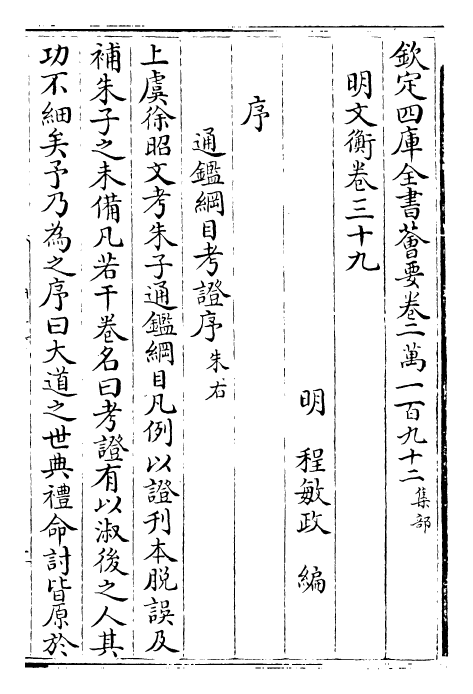 欽定四庫全書薈要卷二萬一百九十二集部
明文衡卷三十九
明程敏政編
序
通鑑綱目考證序朱右
上虞徐昭文考朱子通鑑綱目凡例以證刊本脱誤及
補朱子之未備凡若干卷名曰考證有以淑後之人其
功不細矣予乃為之序曰大道之世典禮命討皆原於